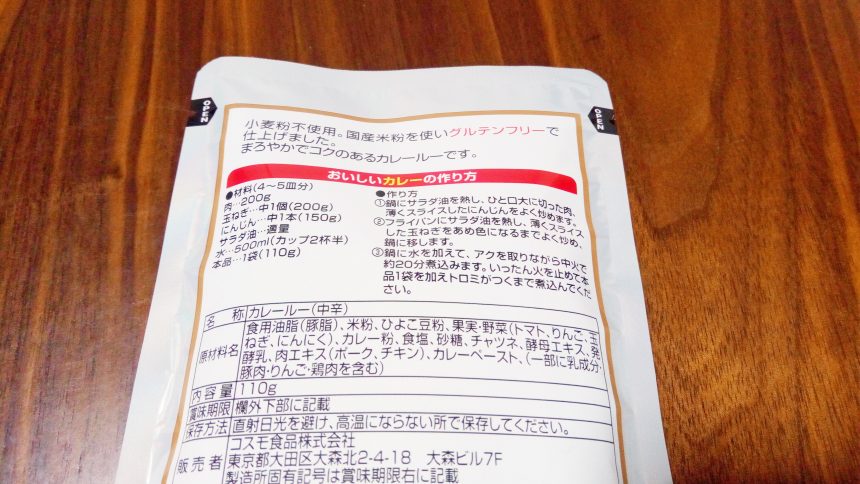 OPEN
OPEN
小麦粉不使用。国産米粉を使いグルテンフリーで
仕上げました。
まろやかでコクのあるカレールーです。
おいしいカレーの作り方
●材料(4〜5皿分)
肉…200g
玉ねぎ…中1個(200g)
にんじん…中1本(150g)
サラダ油…適量
水…500ml(カップ2杯半)
本品…1袋(110g)
●作り方
①鍋にサラダ油を熱し、ひと口大に切った肉、
薄くスライスしたにんじんをよく炒めます。
②フライパンにサラダ油を熱し、薄くスライス
した玉ねぎをあめ色になるまでよく炒め、
鍋に移します。
③鍋に水を加えて、アクを取りながら中火で
約20分煮込みます。いったん火を止めて本
品1袋を加えトロミがつくまで煮込んでくだ
さい。
名 称 カレールー(中辛)
原材料名 食用油脂(豚脂)、米粉、ひよこ豆粉、果実・野菜(トマト、りんご、玉
ねぎ、にんにく)、カレー粉、食塩、砂糖、チャツネ、酵母エキス、発
酵乳、肉エキス(ポーク、チキン)、カレーペースト、(一部に乳成分・
豚肉・りんご・鶏肉を含む)
内容量 110g
賞味期限 欄外下部に記載
保存方法 直射日光を避け、高温にならない所で保存してください。
販売者 コスモ食品株式会社
東京都大田区大森北2-4-18 大森ビル7F
製造所固有記号は賞味期限右に記載